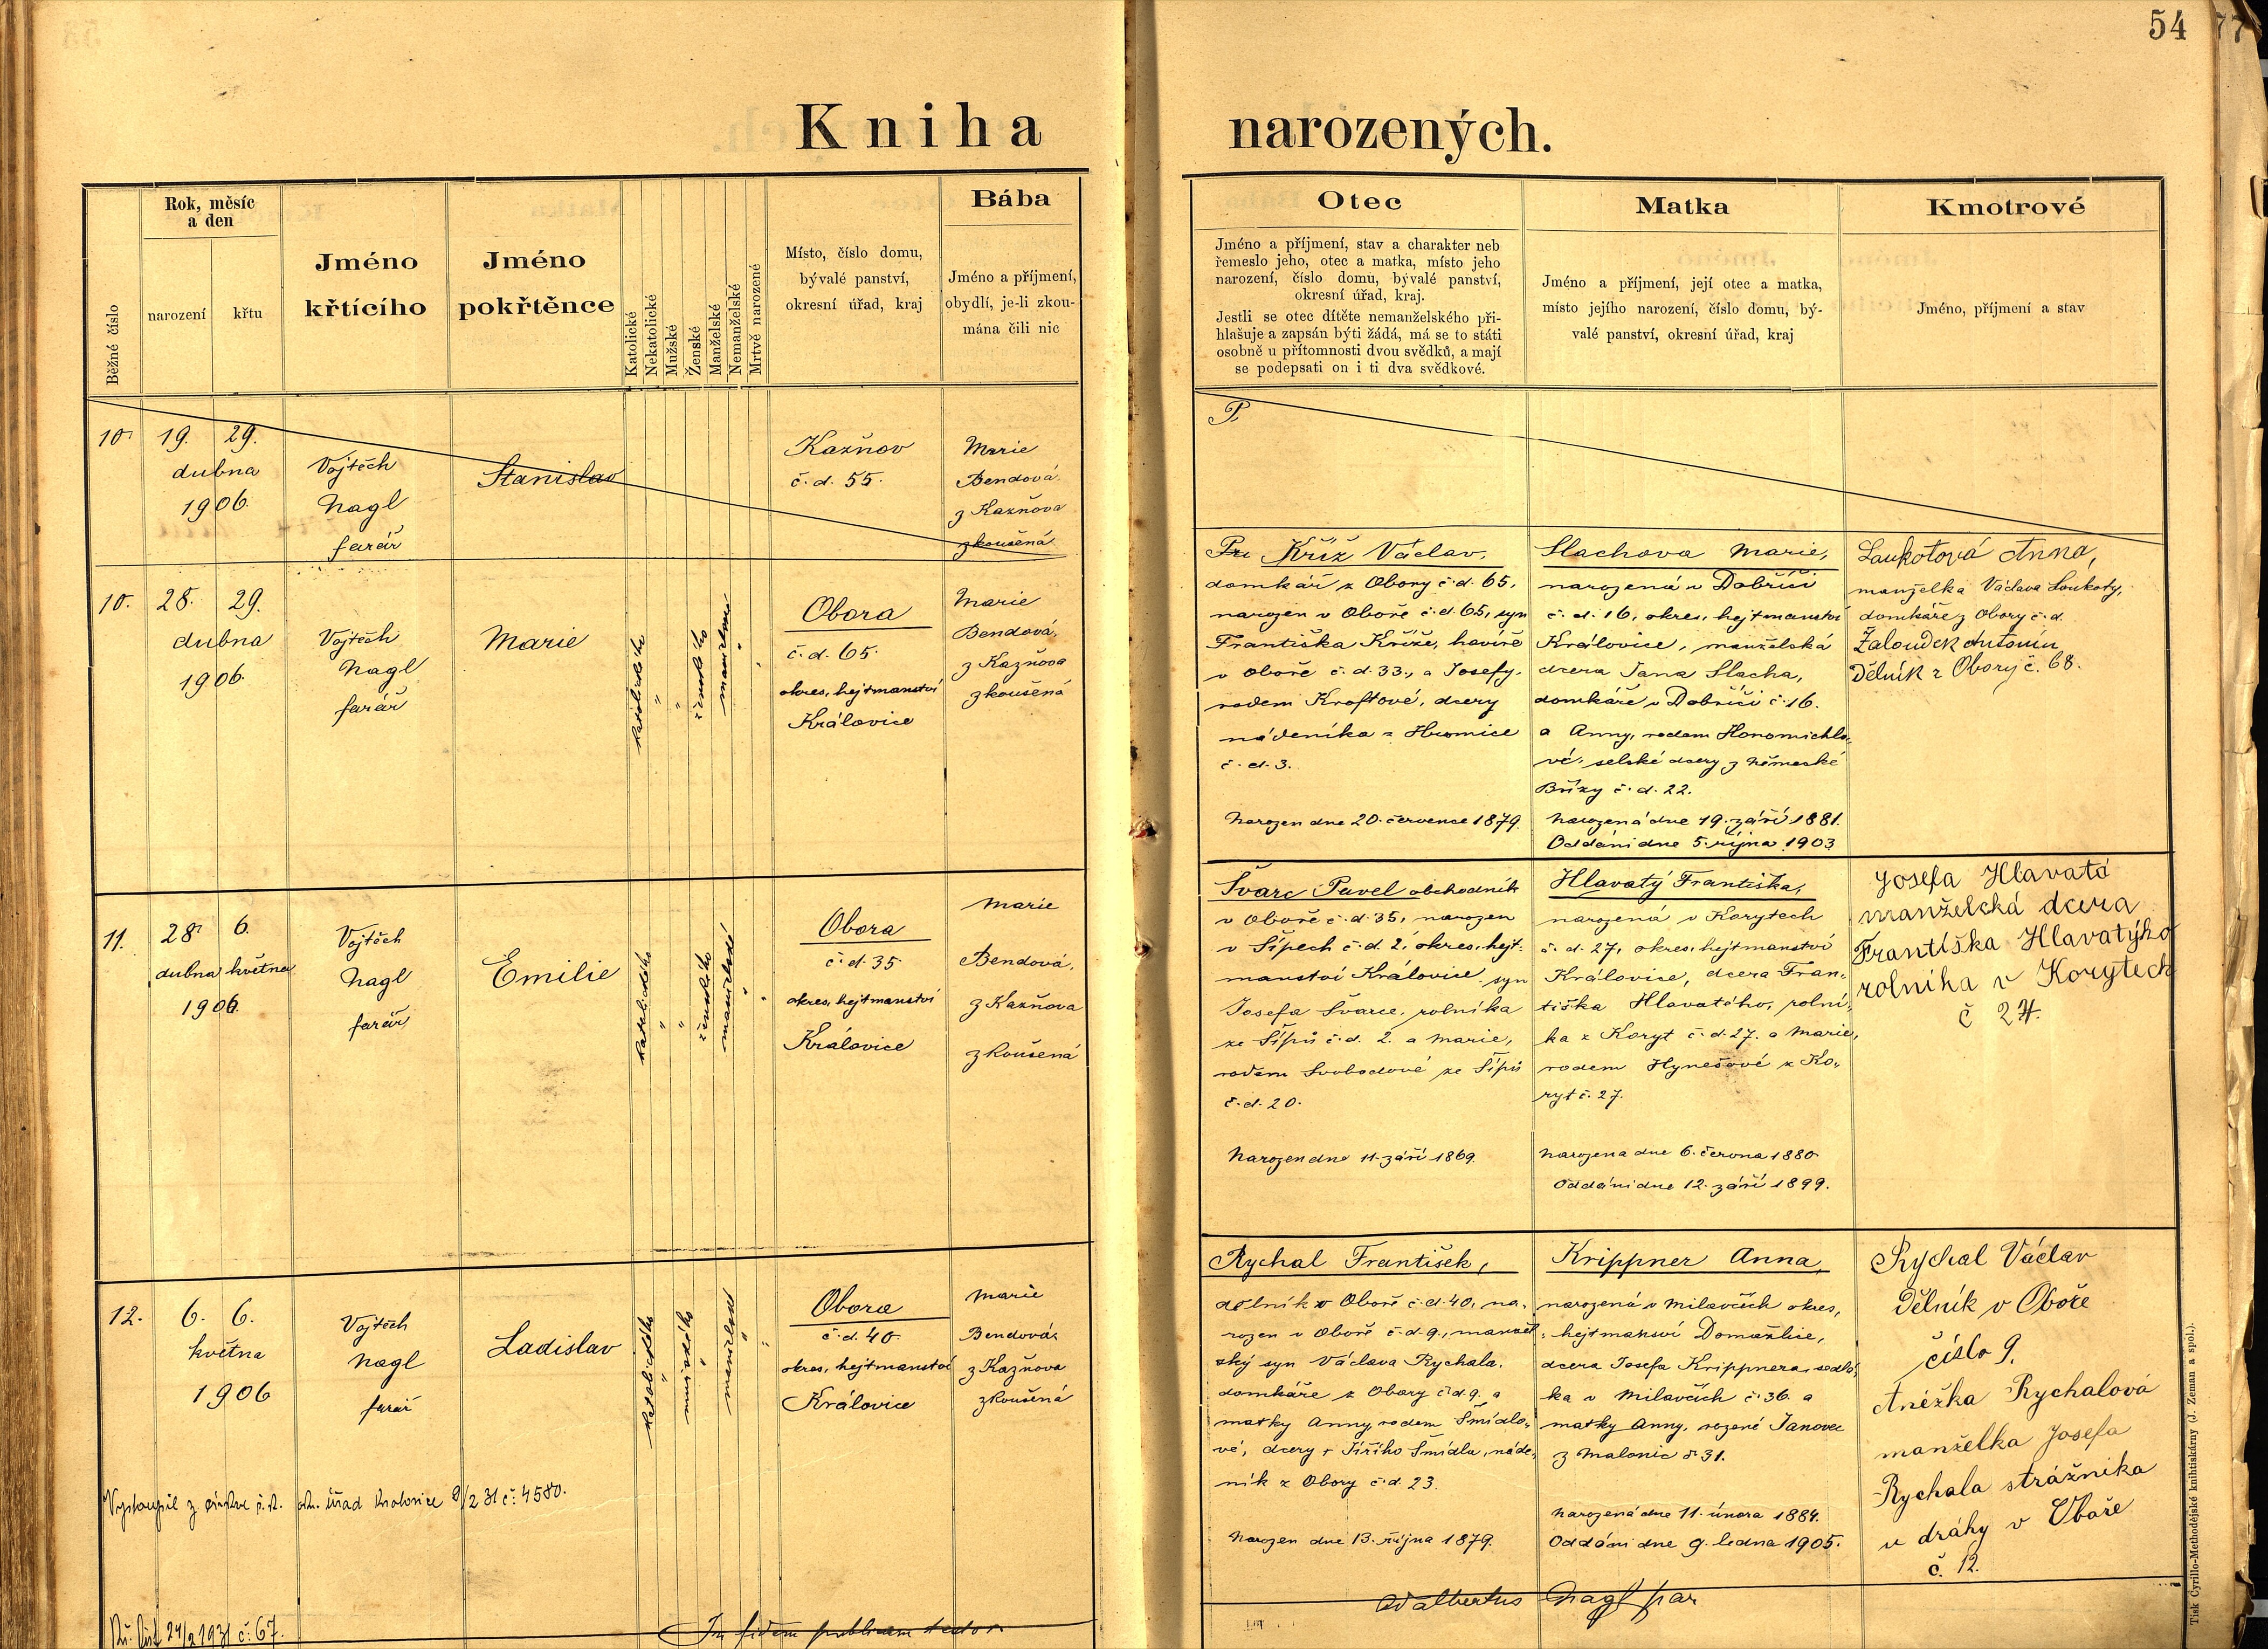 54
77
Kniha narozených.
Běžné číslo
Rok, měsíc
a den
narození
křtu
Jméno
křtícího
Jméno
pokřtěnce
Katolické
Nekatolické
Mužské
Ženské
Manželské
Nemanželské
Mrtvě narozené
Místo, číslo domu,
bývalé panství,
okresní úřad, kraj
Bába
Jméno a příjmení,
obydlí, je-li zkou-
mána čili nic
Otec
Jméno a příjmení, stav a charakter neb
řemeslo jeho, otec a matka, místo jeho
narození, číslo domu, bývalé panství,
okresní úřad, kraj.
Jestli se otec dítěte nemanželského při-
hlašuje a zapsán býti žádá, má se to státi
osobně u přítomnosti dvou svědků, a mají
se podepsati on i ti dva svědkové.
Matka
Jméno a příjmení, její otec a matka,
místo jejího narození, číslo domu, bý-
valé panství, okresní úřad, kraj
Kmotrové
Jméno, příjmení a stav
10.
19. 29.
dubna
1906.
Vojtěch
Nagl
farář
Stanislav
Kazňov
č. d. 55.
Marie
Bendová
z Kazňova
zkoušená
P.
10.
28. 29.
dubna
1906.
Vojtěch
Nagl
farář
Marie
katolického
"
"
ženského
"
Obora
č. d. 65.
okres. hejtmanství
Královice
Marie
Bendová,
z Kazňova
zkoušená
Kříž Václav,
domkář z Obory č. d. 65,
narozen v Oboře č. d. 65, syn
Františka Kříže, havíře
v Oboře č. d. 33., a Josefy,
rodem Kroftové, dcery
nádeníka z Hromice
č. d. 3.
Narozen dne 20. července 1879.
Slachova Marie,
narozená v Dobříči
č. d. 16, okres. hejtmanství
Královice, manželská
dcera Jana Slacha,
domkáře v Dobříči č. 16.
a Anny, rodem Honomichlo-
vé, selské dcery z Německé
Břízy č. d. 22.
Narozená dne 19. září 1881.
Oddáni dne 5. října 1903
Loukotová Anna,
manželka Václava Loukoty,
domkáře z Obory č. d.
Žaloudek Antonín
Dělník z Obory č. 68.
11.
28. 6.
dubna května
1906.
Vojtěch
Nagl
farář
Emilie
katolického
"
"
ženského
manželské
"
Obora
č. d. 35
okres. hejtmanství
Královice
Marie
Bendová,
z Kazňova
zkoušená
Švarc Pavel obchodník
v Oboře č. d. 35, narozen
v Šípech č. d. 2, okres. hejt-
manství Královice, syn
Josefa Švarce, rolníka
ze Šípů č. d. 2. a Marie,
rodem Svobodové ze Šípů
č. d. 20.
Narozen dne 11. září 1869.
Hlavatý Františka,
narozená v Korytech
č. d. 27, okres. hejtmanství
Královice, dcera Fran-
tiška Hlavatého, rolní-
ka z Koryt č. d. 27. a Marie,
rodem Hynešové z Ko-
ryt č. 27.
Narozena dne 6. června 1880
Oddáni dne 12. září 1899.
Josefa Hlavatá
manželská dcera
Františka Hlavatýho
rolníka v Korytech
č 27.
12.
6. 6.
května
1906
Vojtěch
Nagl
farář
Ladislav
katolického
"
mužského
"
manželské
"
Obora
č. d. 40.
okres. hejtmanství
Královice
Marie
Bendová,
z Kazňova
zkoušená
Rychal František,
dělník v Oboře č. d. 40, na-
rozen v Oboře č. d. 9., manžel-
ský syn Václava Rychala,
domkáře z Obory č. d. 9. a
matky Anny, rodem Šmídlo-
vé, dcery + Jiřího Šmídla, náde-
ník z Obory č. d. 23.
Narozen dne 13. října 1879.
Krippner Anna,
narozená v Milavčích okres.
hejtmansví Domažlice,
dcera Josefa Krippnera, sedlá-
ka v Milavčích č. 36. a
matky Anny, rozené Janovec
z Malonic č. 31.
Narozená dne 11. února 1884.
Oddáni dne 9. ledna 1905.
Rychal Václav
Dělník v Oboře
číslo 9.
Anéžka Rychalová
manželka Josefa
Rychala strážníka
u dráhy v Oboře
č. 12.
Vystoupil z církve ř. k. okr. úřad Kralovice 9/2 31 č: 4580.
24/2 1931 č: 67.
In fidem publicam testor
Adalbertus Nagl par
Tisk Cyrillo-Methodějské knihtiskárny (J. Zeman a spol.).